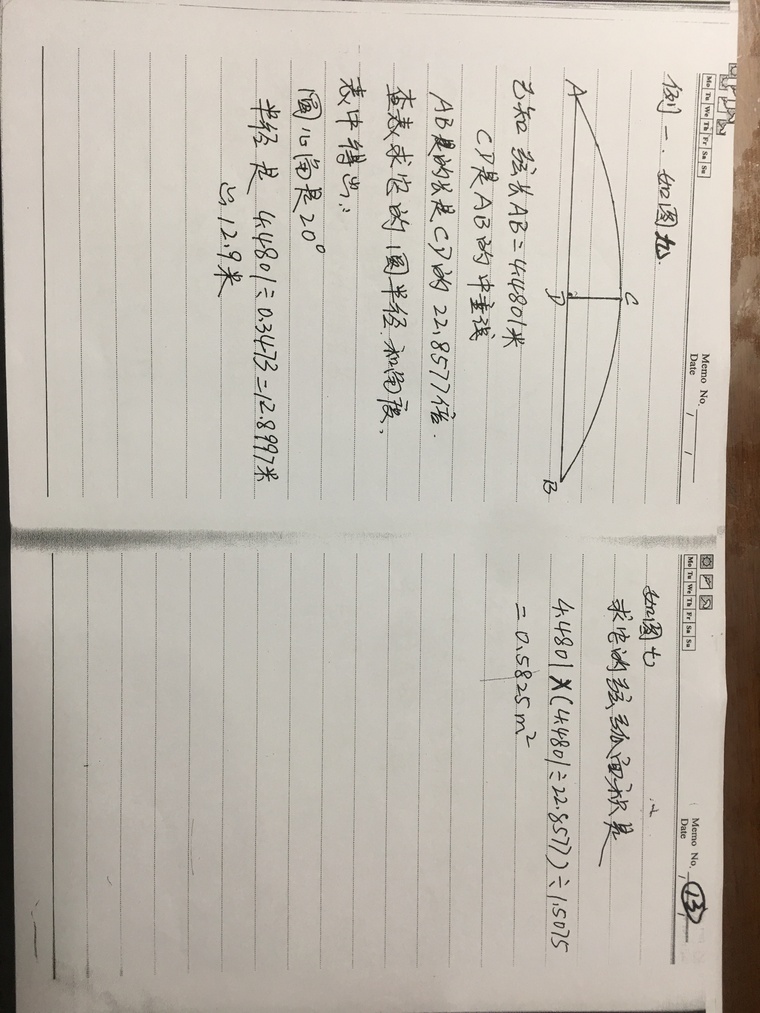 Mo Tu We Th Fr Sa Su
Memo No.
Date / /
例一. 如图九.
A
C
D
B
已知 弦长AB=4.4801米
CD是AB的中垂线
AB是的长是CD的22.8577倍.
查表求它的圆半径.和角度,
表中得出:
圆心角是20°
半径是 4.4801÷0.3473=12.8997米
≌12.9米
Mo Tu We Th Fr Sa Su
Memo No.
Date / /
13
如图七
求它的弦弧面积是
4.4801×(4.4801÷22.8577)÷1.5075
=0.5825m²